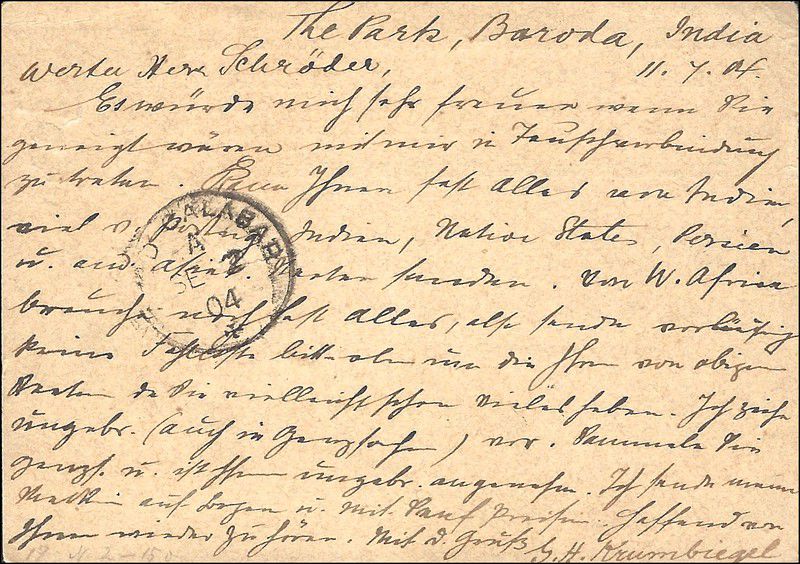 The Park, Baroda, India
Werter Herr Schröder, 11. 7. 04.
Es würde mich sehr freuen wenn Sie
geneigt wären mit mir in Tauschverbindung
zu treten. Kann Ihnen fast alles von Indien,
viel v. Indien, Native States, Persien
u. and. senden. Von W. Afrika
brauche noch fast alles, also sende vorläufig
keine Fehlliste bitte um die Ihre von obigen
Staaten da Sie vielleicht schon vieles haben. Ich ziehe
ungebr. (auch in Ganzsachen) vor. Sammeln Sie
Ganzs. u. ist Ihnen ungebr. angenehm. Ich sende meine
Marken auf Bogen u. mit Preisen. Hoffend von
Ihnen wieder zu hören. Mit d. Gruß G. H. Krumbiegel
JALABAD
A
SE 2
04